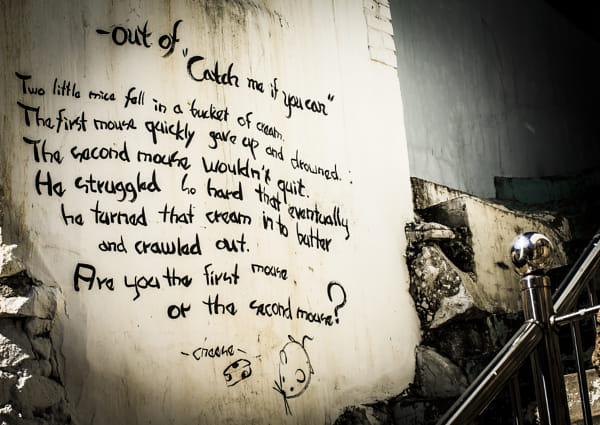 -out of
"Catch me if you can"
Two little mice fell in a bucket of cream.
The first mouse quickly gave up and drowned.:
The second mouse wouldn't quit.
He struggled so hard that eventually
he turned that cream in to butter
and crawled out.
Are you the first mouse
or the second mouse?
- cheese -